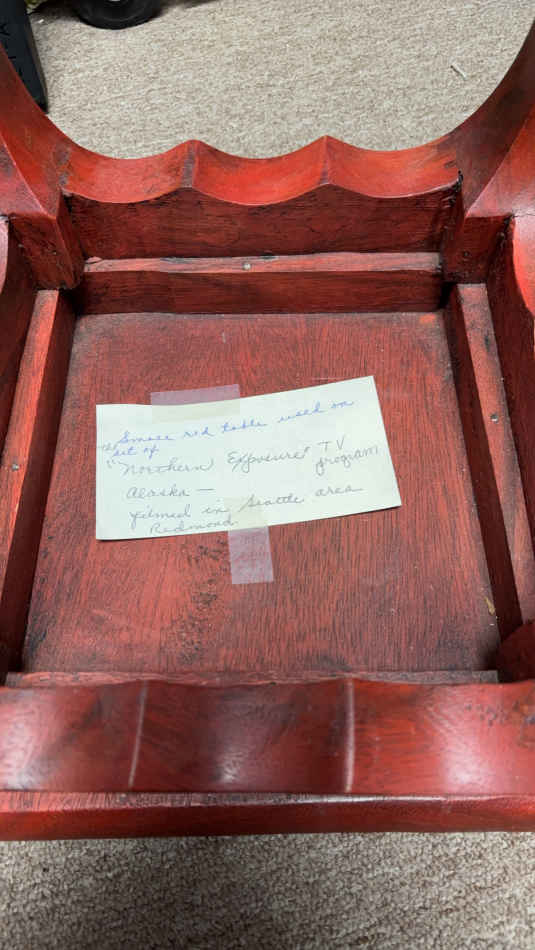 Small red table used on
the set of
"Northern Exposure" TV
program
Alaska —
filmed in Seattle area
Redmond